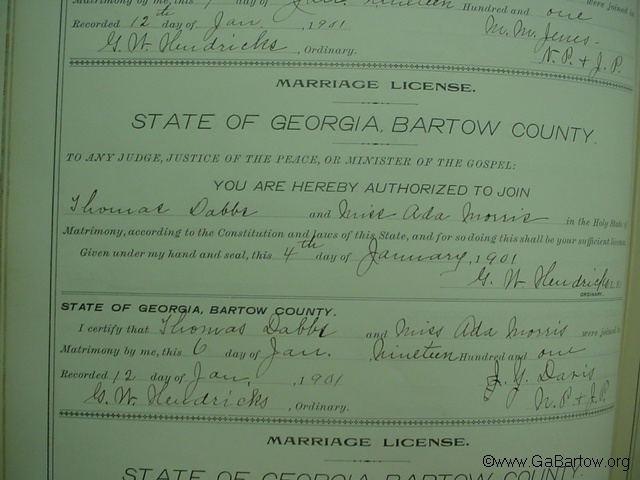 Matrimony by me, this day of Jan. nineteen Hundred and one were joined in
Recorded 12th day of Jan, 1901 M. M. Jenes.
G. W. Hendricks, Ordinary. N. P. + J. P.
MARRIAGE LICENSE.
STATE OF GEORGIA, BARTOW COUNTY.
TO ANY JUDGE, JUSTICE OF THE PEACE, OR MINISTER OF THE GOSPEL:
YOU ARE HEREBY AUTHORIZED TO JOIN
Thomas Dabbs and Miss Ada Morris in the Holy State of
Matrimony, according to the Constitution and laws of this State, and for so doing this shall be your sufficient license.
Given under my hand and seal, this 4th day of January, 1901
G. W. Hendricks L.S.
ORDINARY.
STATE OF GEORGIA, BARTOW COUNTY.
I certify that Thomas Dabbs and Miss Ada Morris were joined in
Matrimony by me, this 6 day of Jan. nineteen Hundred and one
Recorded 12 day of Jan, 1901 J. G. Davis
G. W. Hendricks, Ordinary. N. P. + J. P.
MARRIAGE LICENSE.
STATE OF GEORGIA, BARTOW COUNTY.
©www.GaBartow.org